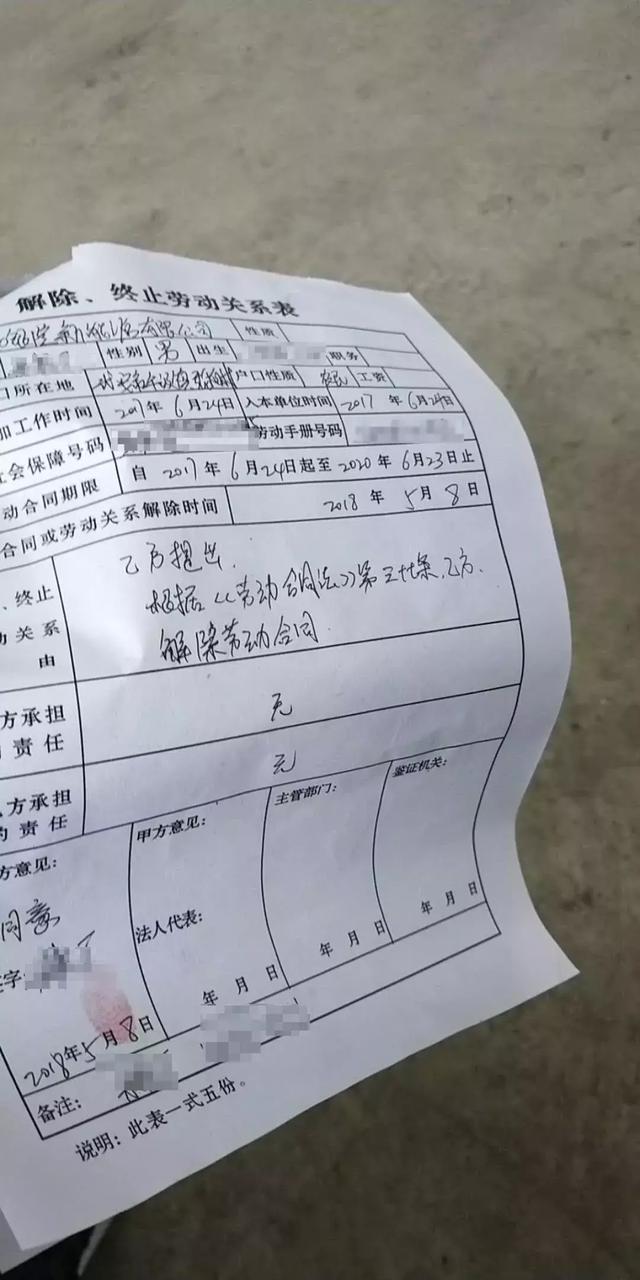 解除、终止劳动关系表
有限公司 性质
性别 男 出生 职务
口所在地 户口性质 农民 工资
加工作时间 2017年6月24日 入本单位时间 2017年6月24日
社会保障号码 劳动手册号码
动合同期限 自2017年6月24日起至2020年6月23日止
合同或劳动关系解除时间 2018年5月8日
、终止
动关系
由
乙方提出.
根据《劳动合同法》第三十七条,乙方
解除劳动合同
方承担
责任
无
方承担
的责任
无
方意见:
同意
签字
2018年5月8日
甲方意见:
法人代表:
年 月 日
主管部门:
年 月 日
鉴证机关:
年 月 日
备注:
说明:此表一式五份。